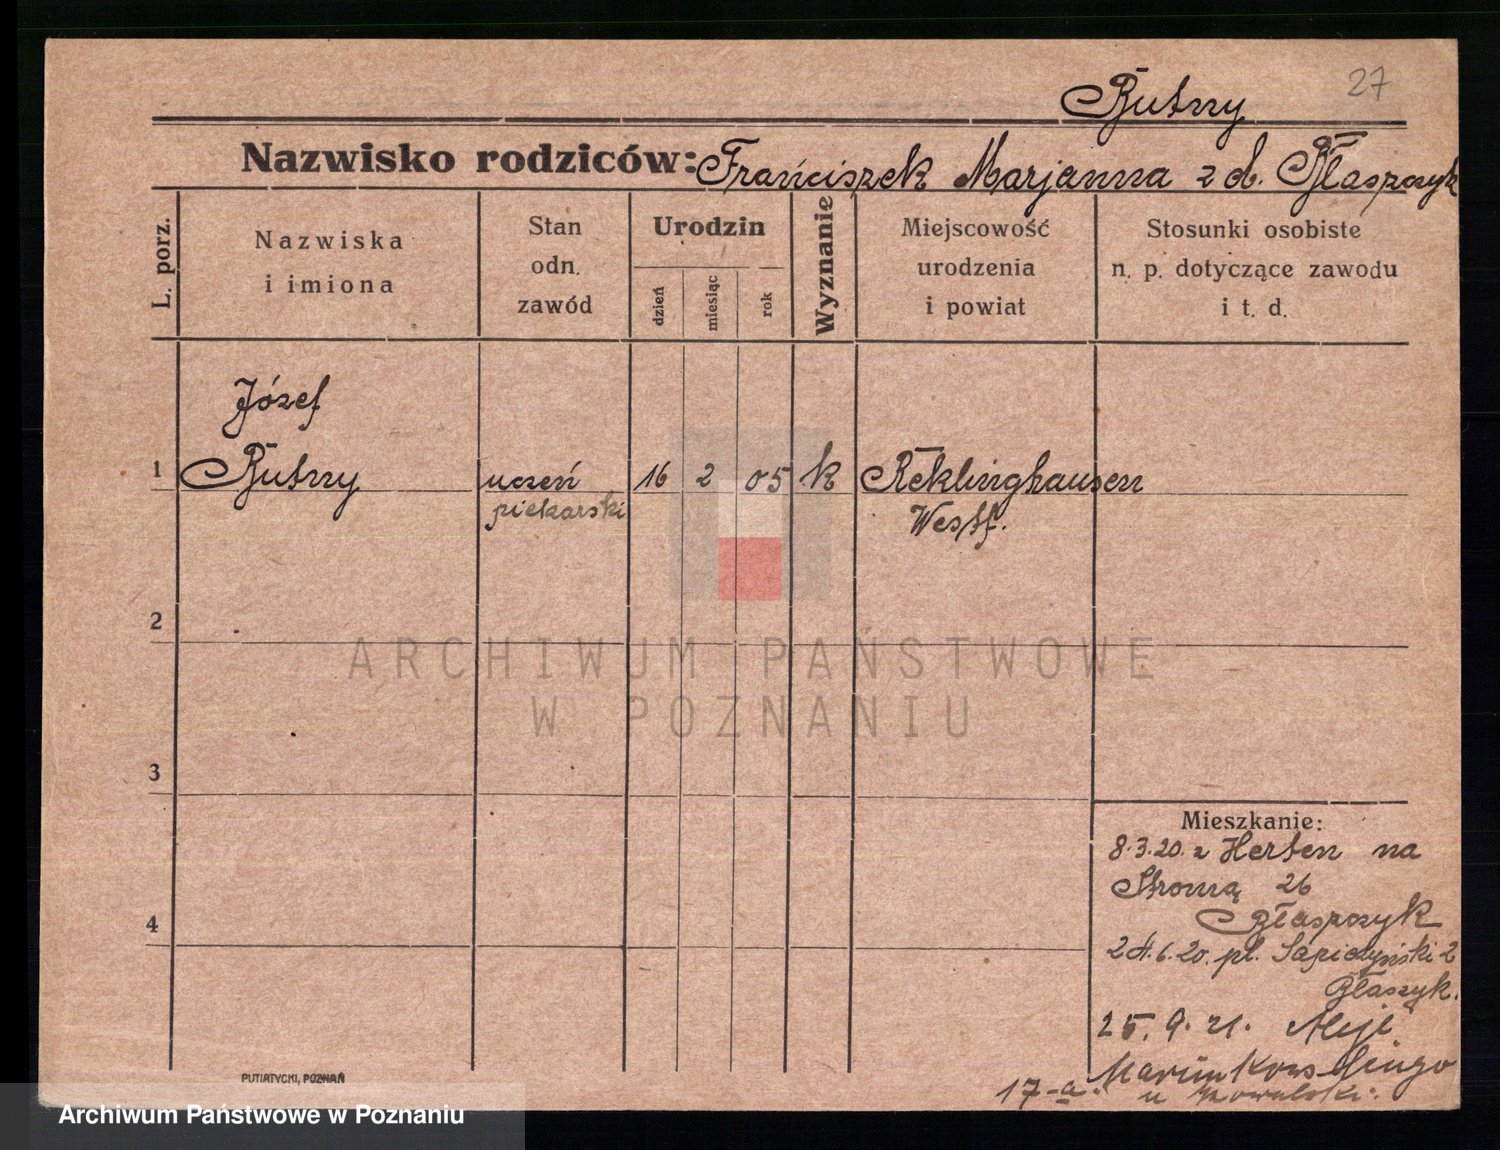 27
Butny
Nazwisko rodziców: Franciszek Marjanna z d. Błaszczyk
L. porz.
Nazwiska
i imiona
Stan
odn.
zawód
Urodzin
dzień
miesiąc
rok
Wyznanie
Miejscowość
urodzenia
i powiat
Stosunki osobiste
n. p. dotyczące zawodu
i t. d.
Józef
1 Butny uczeń 16 2 05 k Reklinghausen
piekarski Westf.
2
3
4
Mieszkanie:
8.3.20. z Herten na
Stromą 26
Błaszczyk
24.6.20. pl. Sapieżyński 2
Błaszyk.
25.9.21. Aleje
Marcinkowskiego
17-a. u Kowalski.
PUTIATYCKI, POZNAŃ
ARCHIWUM PAŃSTWOWE
W POZNANIU
Archiwum Państwowe w Poznaniu